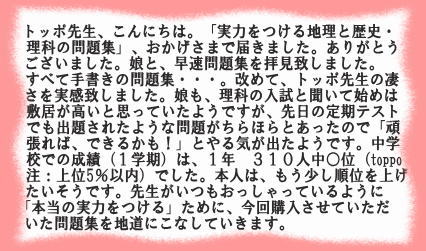 トッポ先生、こんにちは。「実力をつける地理と歴史・
理科の問題集」、おかげさまで届きました。ありがとう
ございました。娘と、早速問題集を拝見致しました。
すべて手書きの問題集・・・。改めて、トッポ先生の凄
さを実感致しました。娘も、理科の入試と聞いて始めは
敷居が高いと思っていたようですが、先日の定期テスト
でも出題されたような問題がちらほらとあったので「頑
張れば、できるかも！」とやる気が出たようです。中学
校での成績（１学期）は、１年　３１０人中〇位（toppo
注：上位5％以内）でした。本人は、もう少し順位を上げ
たいそうです。先生がいつもおっしゃっているように
「本当の実力をつける」ために、今回購入させていただ
いた問題集を地道にこなしていきます。